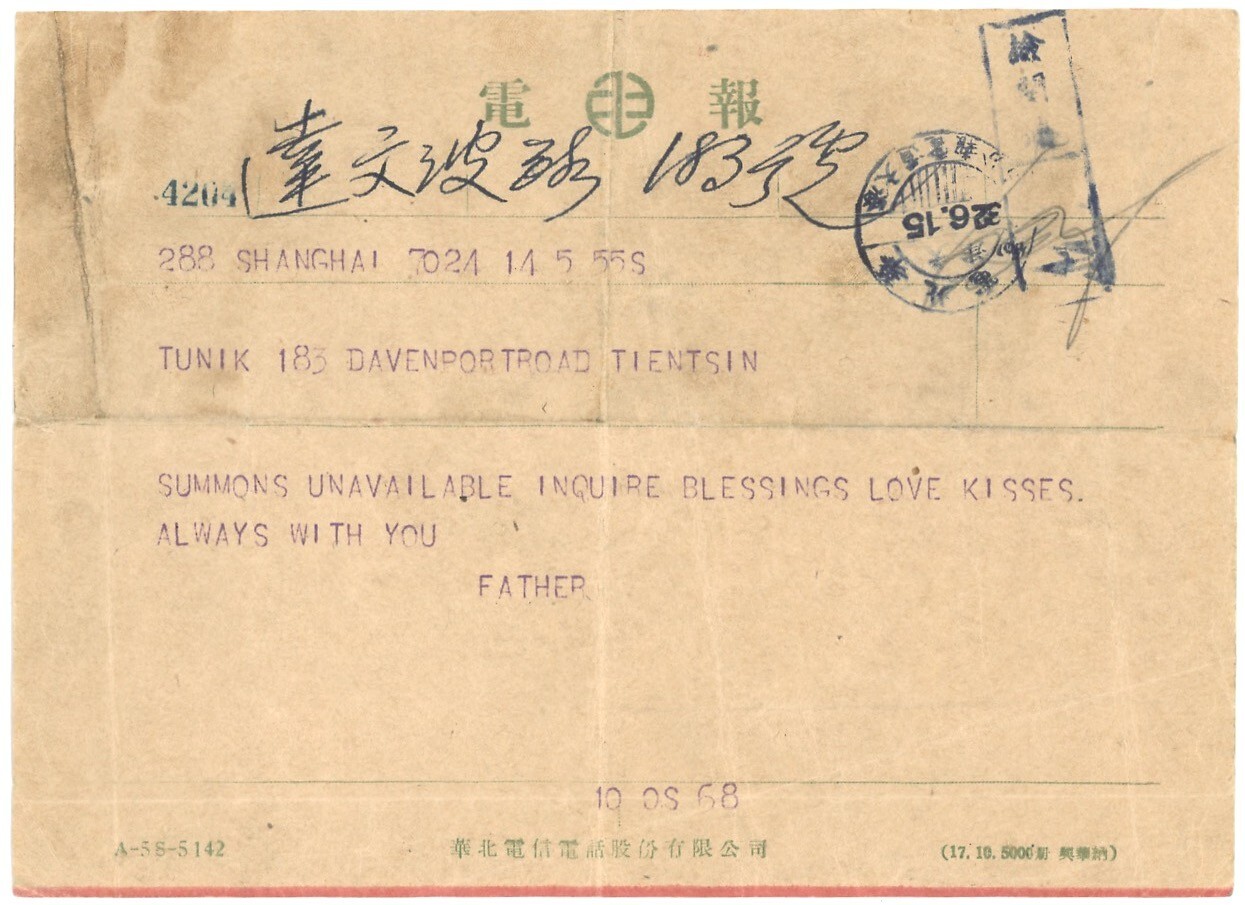 電 報
達文波路 183號
4204
32.6.15
288 SHANGHAI 7024 14 5 55S
TUNIK 183 DAVENPORTROAD TIENTSIN
SUMMONS UNAVAILABLE INQUIRE BLESSINGS LOVE KISSES.
ALWAYS WITH YOU
FATHER
10 OS 68
A-5S-5142 華北電信電話股份有限公司 (17.10.5000冊 興華納)